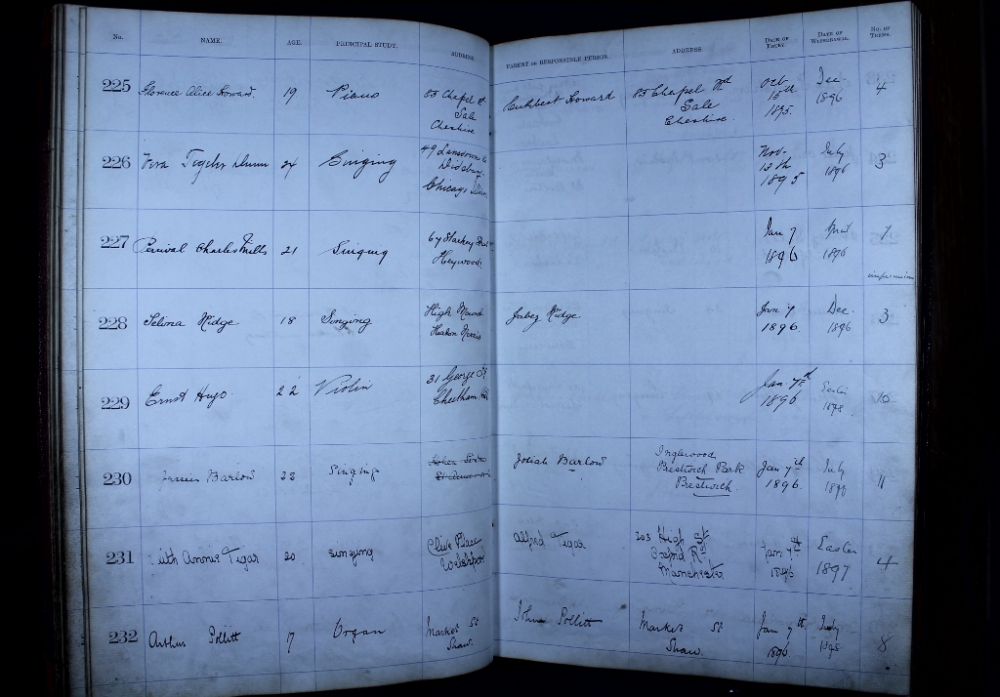 No. NAME. AGE. PRINCIPAL STUDY. ADDRESS. PARENT OR RESPONSIBLE PERSON. ADDRESS. DATE OF ENTRY. DATE OF WITHDRAWAL. NO. OF TERMS.
225 Florence Alice Howard. 19 Piano 85 Chapel Rd Cuthbert Howard 85 Chapel Rd Oct Dec 4
Sale Sale 15th 1896
Cheshire Cheshire. 1895.
226 Vera 24 Singing 49 Nov. July 3
Didsbury 13th 1896
Chicago 1895
227 Percival Charles Mills 21 Singing 67 Starkey Jan 7 1
Heywood. 1896 1896
228 Selina Ridge 18 Singing High Jabez Ridge Jan 7 Dec. 3
Heaton Norris 1896. 1896
229 Ernst Hugo 22 Violin 31 George St Jan 7th Easter 10
Cheetham Hill 1896 1898
230 Barlow 22 Singing Josiah Barlow Inglewood Jan 7th July 11
Prestwich Park 1896.
Prestwich.
231 Annie Tigar 20 Singing Clive Place Alfred Tigar 203 High St Jan 7th Easter 4
Welshpool Oxford Rd 1896 1897
Manchester
232 Arthur Pollitt 17 Organ Market St John Pollitt Market St Jan 7th July 8
Shaw. Shaw. 1896. 1898